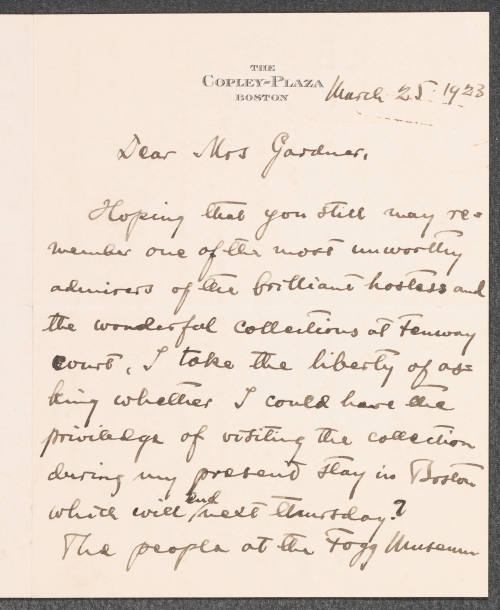 THE
COPLEY-PLAZA
BOSTON
March 25 1923
Dear Mrs Gardner,
Hoping that you still may re=
member one of the most unworthy
admirers of the brilliant hostess and
the wonderful collections at Fenway
court, I take the liberty of as=
king whether I could have the
priviledge of visiting the collection
during my present stay in Boston
which will end next thursday?
The people at the Fogg Museum